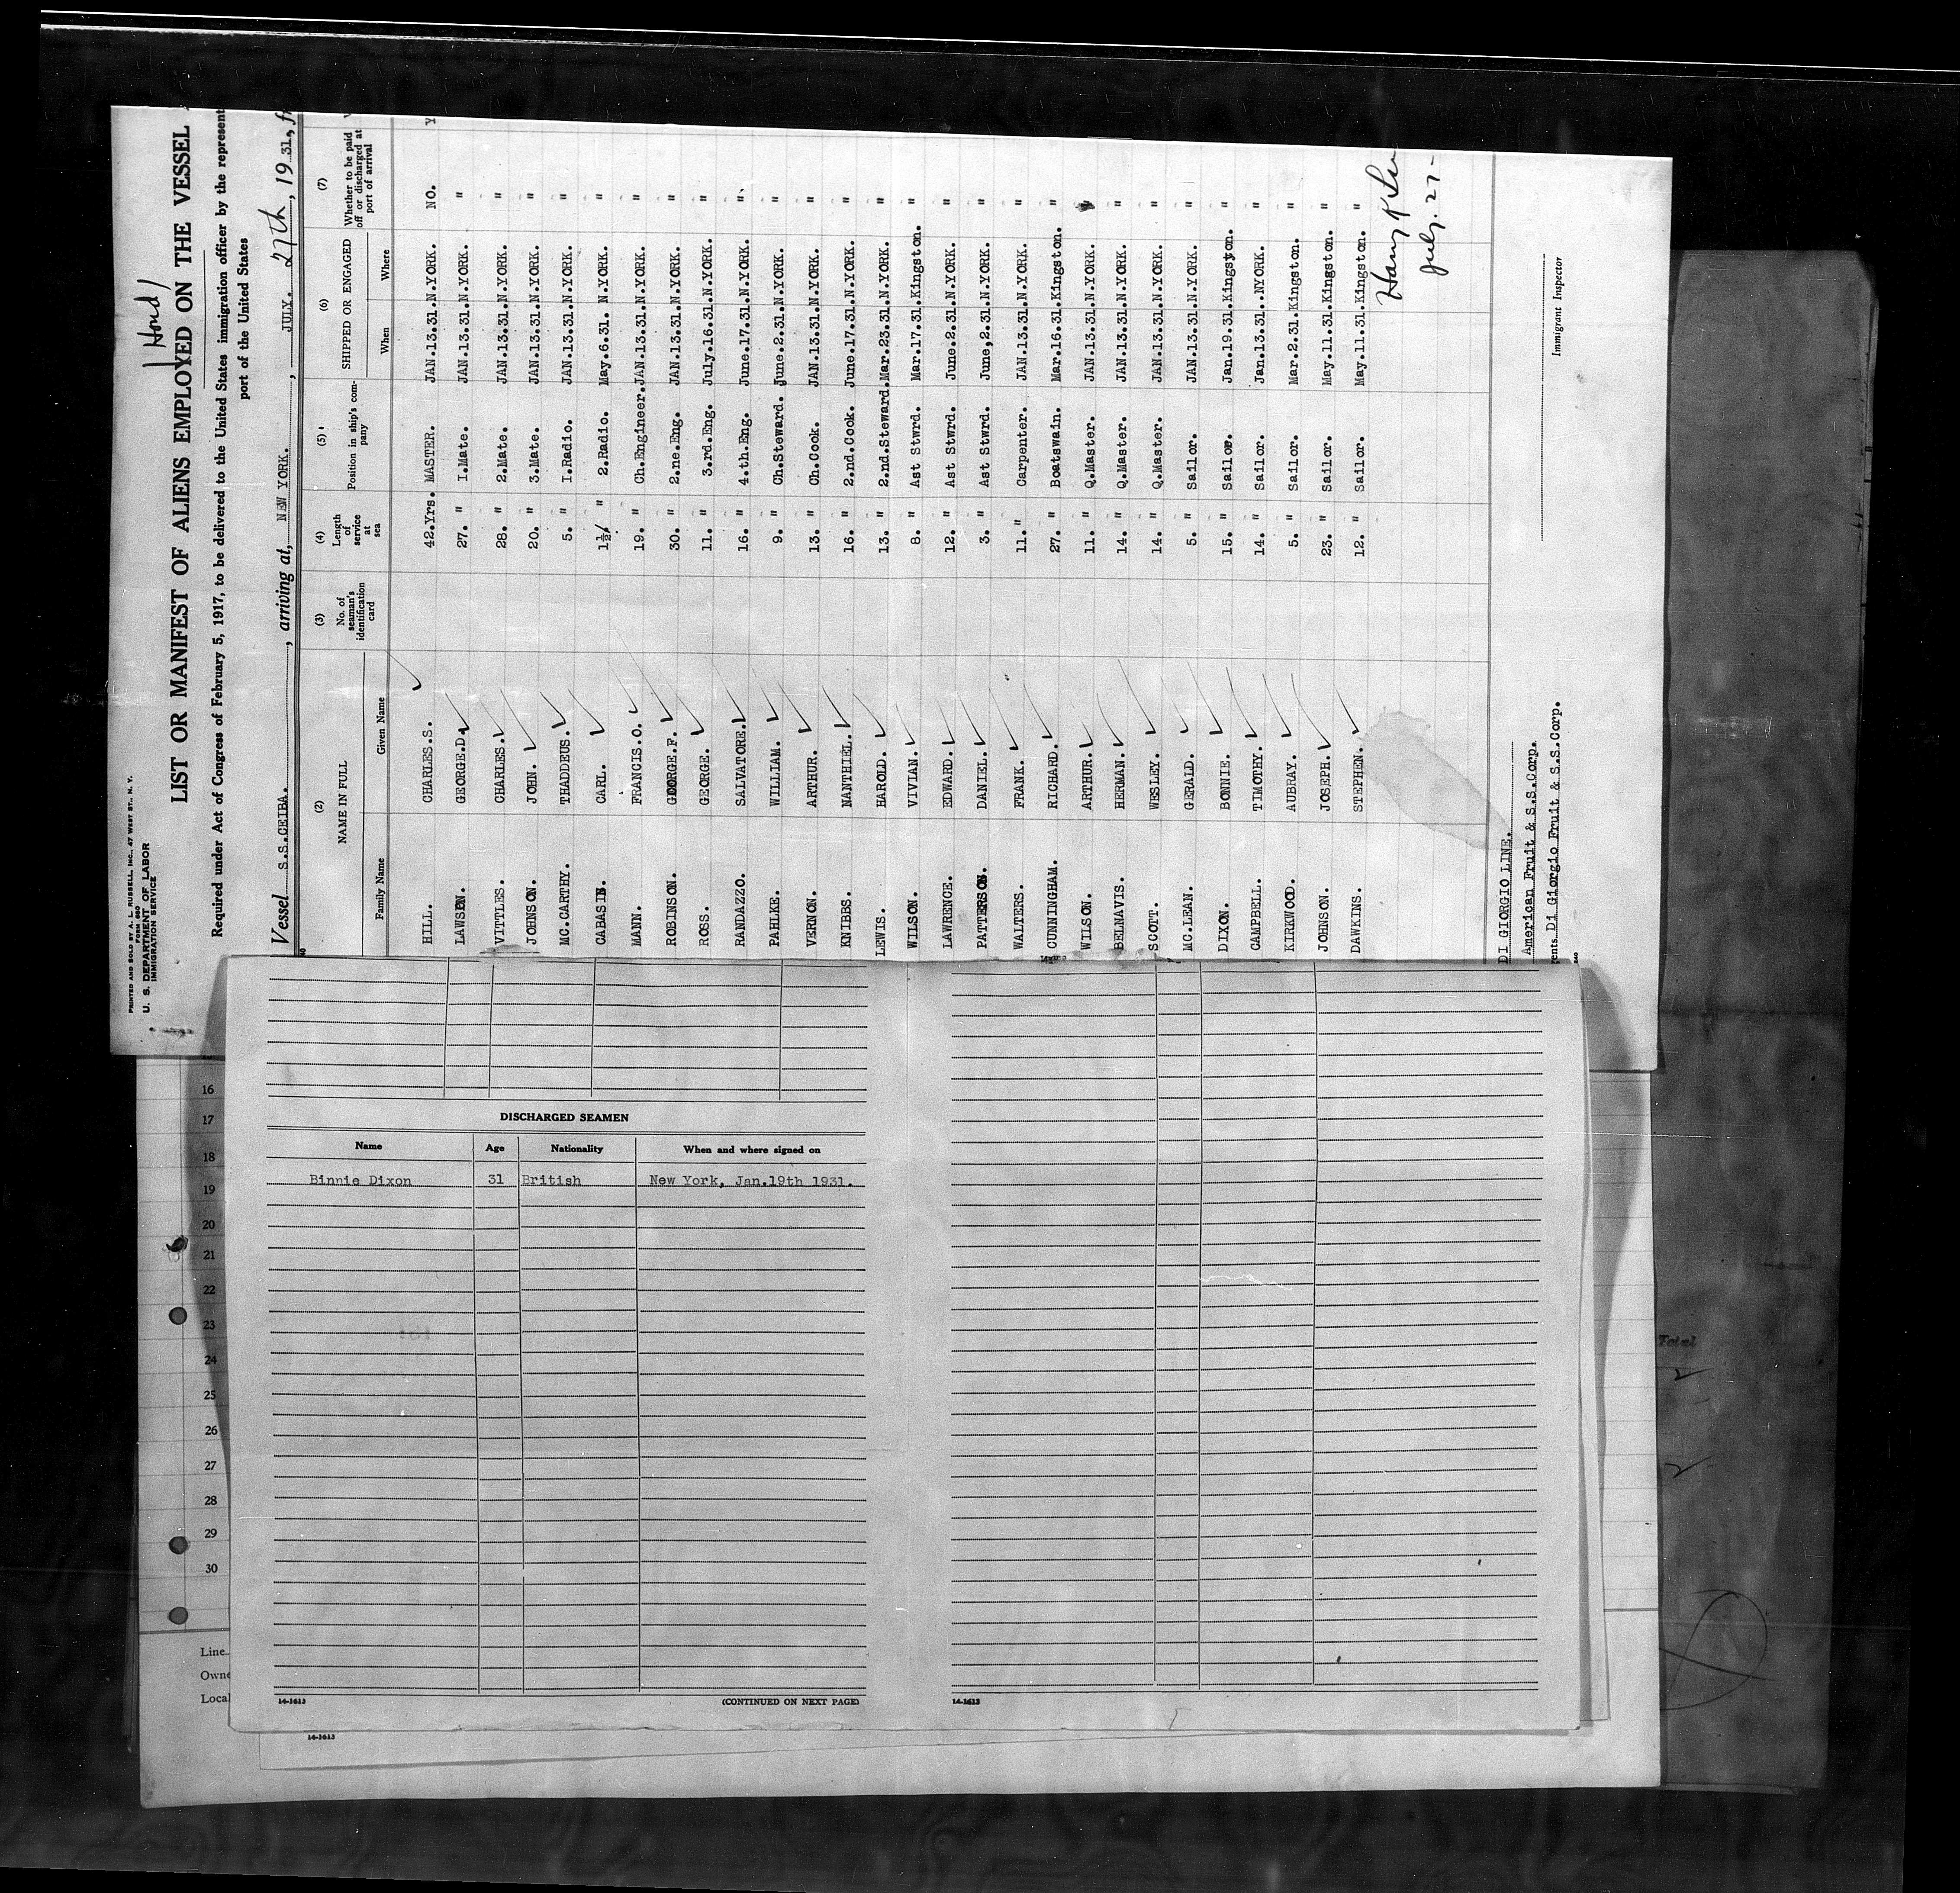 PRINTED AND SOLD BY A. L. RUSSELL, INC., 47 WEST ST., N. Y.
FORM 680
U. S. DEPARTMENT OF LABOR
IMMIGRATION SERVICE
LIST OR MANIFEST OF ALIENS EMPLOYED ON THE VESSEL
Required under Act of Congress of February 5, 1917, to be delivered to the United States immigration officer by the represent
port of the United States
Vessel S.S.CEIBA. , arriving at, NEW YORK. , JULY. 27th, 1931, f
(2) (3) (4) (5) (6) (7)
NAME IN FULL No. of seaman's identification card Length of service at sea Position in ship's company SHIPPED OR ENGAGED Whether to be paid off or discharged at port of arrival
Family Name Given Name When Where
HILL. CHARLES.S. 42.Yrs. MASTER. JAN.13.31.N.YORK. NO. Y
LAWSON. GEORGE.D. 27. " I.Mate. JAN.13.31.N.YORK. "
VITTLES. CHARLES. 28. " 2.Mate. JAN.13.31.N.YORK. "
JOHNSON. JOHN. 20. " 3.Mate. JAN.13.31.N.YORK. "
MC.CARTHY. THADDEUS. 5. " I.Radio. JAN.13.31.N.YORK. "
CABASIN. CARL. 1½ " 2.Radio. May.6.31. N.YORK. "
MANN. FRANCIS.O. 19. " Ch.Engineer.JAN.13.31.N.YORK. "
ROBINSON. GEORGE.F. 30. " 2.ne.Eng. JAN.13.31.N.YORK. "
ROSS. GEORGE. 11. " 3.rd.Eng. July.16.31.N.YORK. "
RANDAZZO. SALVATORE. 16. " 4.th.Eng. June.17.31.N.YORK. "
PAHLKE. WILLIAM. 9. " Ch.Steward. June.2.31.N.YORK. "
VERNON. ARTHUR. 13. " Ch.Cook. JAN.13.31.N.YORK. "
KNIBBS. NANTHIEL. 16. " 2.nd.Cook. June.17.31.N.YORK. "
LEWIS. HAROLD. 13. " 2.nd.Steward.Mar.23.31.N.YORK. "
WILSON. VIVIAN. 8. " Ast Stwrd. Mar.17.31.Kingston. "
LAWRENCE. EDWARD. 12. " Ast Stwrd. June.2.31.N.YORK. "
PATTERSON. DANIEL. 3. " Ast Stwrd. June,2.31.N.YORK. "
WALTERS. FRANK. 11. " Carpenter. JAN.13.31.N.YORK. "
CUNNINGHAM. RICHARD. 27. " Boatswain. Mar.16.31.Kingston. "
WILSON. ARTHUR. 11. " Q.Master. JAN.13.31.N.YORK. "
BELNAVIS. HERMAN. 14. " Q.Master. JAN.13.31.N.YORK. "
SCOTT. WESLEY. 14. " Q.Master. JAN.13.31.N.YORK. "
MC.LEAN. GERALD. 5. " Sailor. JAN.13.31.N.YORK. "
DIXON. BONNIE. 15. " Sailor. Jan.19.31.Kingston. "
CAMPBELL. TIMOTHY. 14. " Sailor. Jan.13.31..NYORK. "
KIRKWOOD. AUBRAY. 5. " Sailor. Mar.2.31.Kingston. "
JOHNSON. JOSEPH. 23. " Sailor. May.11.31.Kingston. "
DAWKINS. STEPHEN. 12. " Sailor. May.11.31.Kingston. "
July. 27-
Immigrant Inspector
DI GIORGIO LINE.
American Fruit & S.S.Corp.
ents Di Giorgio Fruit & S.S.Corp.
DISCHARGED SEAMEN
Name Age Nationality When and where signed on
Binnie Dixon 31 British New York, Jan.19th 1931.
16
17
18
19
20
21
22
23
24
25
26
27
28
29
30
Line
Owne
Local
14-1613 (CONTINUED ON NEXT PAGE) 14-1613
14-1613
Total